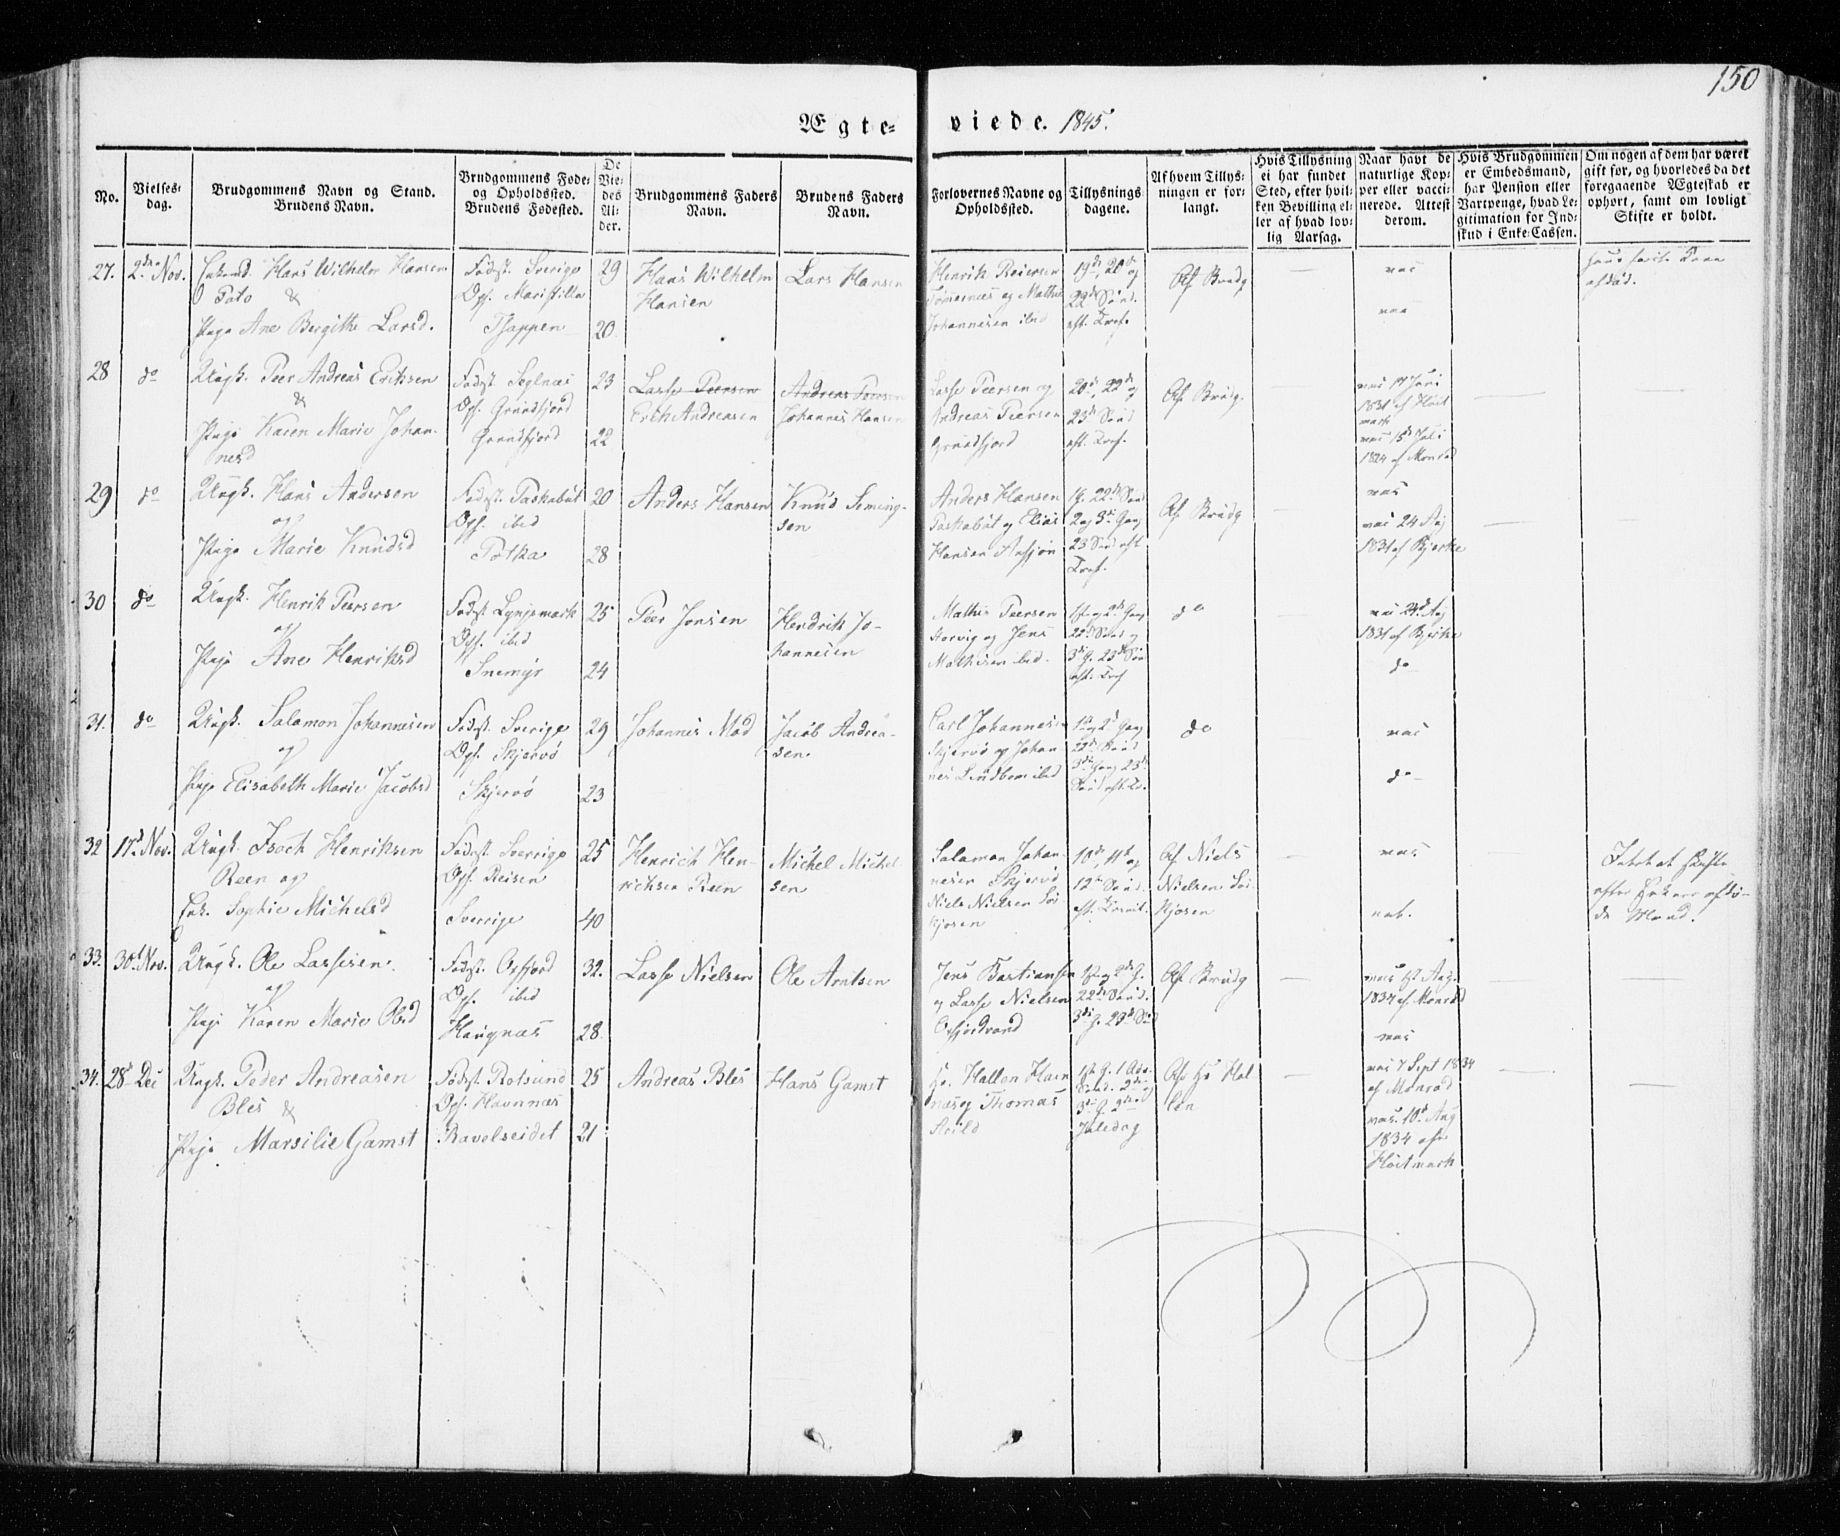 150
Ægte- viede. 1845.
No.
Vielses-
dag.
Brudgommens Navn og Stand.
Brudens Navn.
Brudgommens Føde-
og Opholdssted.
Brudens Fødested.
De
Vie-
des
Al-
der.
Brudgommens Faders
Navn.
Brudens Faders
Navn.
Forlovernes Navne og
Opholdssted.
Tillysnings
dagene.
Af hvem Tillys-
ningen er for-
langt.
Hvis Tillysning
ei har fundet
Sted, efter hvil-
ken Bevilling el-
ler af hvad lov-
lig Aarsag.
Naar havt de
naturlige Kop-
per eller vacci-
nerede. Attest
derom.
Hvis Brudgommen
er Embedsmand,
har Pension eller
Vartpenge, hvad Le-
gitimation for Ind-
skud i Enke-Cassen.
Om nogen af dem har været
gift før, og hvorledes da det
foregaaende Ægteskab er
ophørt, samt om lovligt
Skifte er holdt.
27. 2den Nov. Enkemd. Hans Wilhelm Hansen
Fato &
Pige Ane Bergithe Larsd.
Fødst. Sverige
Ops. Maristilla
Tjappen
29
20
Hans Wilhelm
Hansen
Lars Hansen
Henrik Reiersen
og Mathis
Johannesen ibid
19de, 20de og
22de Sønd.
eft. Tref.
Af Brudg
vac
vac
afdød.
28 do Ungk. Peer Andreas Eriksen
&
Pige Karen Marie Johan-
nesd
Fødst. Seglnæs
Ops. Grundfjord
Grundfjord
23
22
Lasse Peersen
Erik Andreasen
Andreas Peersen
Johannes Hansen
Lasse Peersen og
Andreas Peersen
Grundfjord
20de, 22de og
23de Sønd
eft. Tref.
Af Brudg.
vac 17 Juni
1831 af Høit
mark
vac 15de Juli
1824 af Monrad
29 do Ungk. Hans Andersen
og
Pige Marie Knudsd
Fødst. Taskebut
Ops. ibid
Potka
20
28
Anders Hansen
Knud Seming-
sen
Anders Hansen
Taskabut og Elias
Hansen
1 G. 22de Sønd
2 og 3de Gang
23 Sønd eft
Tref.
Af Brudg
vac
vac 24 Aug
1831 af Bjerke
30 do Ungk. Henrik Peersen
og
Pige Ane Henriksd
Fødst. Lyngsmark
Ops. ibid
Snemyr
25
24
Peer Jonsen
Hendrik Jo-
hannesen
Mathis Peersen
Storvig og Jens
Mathisen ibid.
1ste og 2de Gang
22de Sønd og
3de G. 23de Søn
eft. Tref
do
vac 24de Aug
1831 af Bjerke
do
31. do Ungk. Salamon Johannesen
og
Pige Elisabeth Marie Jacobsd
Fødst. Sverige
Ops. Skjervø
Skjervø
29
23
Johannes Mod
Jacob Andrea-
sen
Carl Johannesen
Skjervø og Johan-
nes Lindbom ibid
1 og 2de Gang
22de Sønd
3de Gang 23de
Sønd eft. Tr.
do
vac
do
32 17de Nov. Ungk. Isach Henriksen
Reen og
Enk. Sophie Michelsd
Fødst. Sverrige
Ops. Reisen
Sverrige
25
40
Henrich Hen-
richsen Reen
Michel Michel
sen
Salamon Johan-
nesen Skjervø
Niels Nielsen Sør-
kjosen
10de, 11te og
12te Sønd.
eft. Trinit.
Af Niels
Nielsen Sør-
kjosen
vac.
nat.
efter Enkens afdø-
de Mand.
33. 30de Nov. Ungk. Ole Lassesen
og
Pige Karen Marie Olsd
Fødst. Oxfjord
Ops. ibid
Haugnæs
32.
28.
Lasse Nielsen
Ole Arntsen
Jens Bastiansen
og Lasse Nielsen
Oxfjordvand
1ste og 2de G.
22de Sønd.
3de G. 23de Sønd
Af Brudg
vac 12 Aug.
1834 af Monrad
vac
34. 28de Dec Ungk. Peder Andreasen
Bles &
Pige Marsilie Gamst
Fødst. Rotsund
Ops. Havnnæs
Ravelseidet
25
21
Andreas Bles
Hans Gamst
Hr. Hallen Havn
næs og Thomas
Arild
1ste G. 1 Adv.
Sønd. 2de og
3de G. 2den
Juledag
Af Hr Hal
len
vac 7 Sept 1834
af Monrad
vac. 10de Aug
1834 af
Høitmark